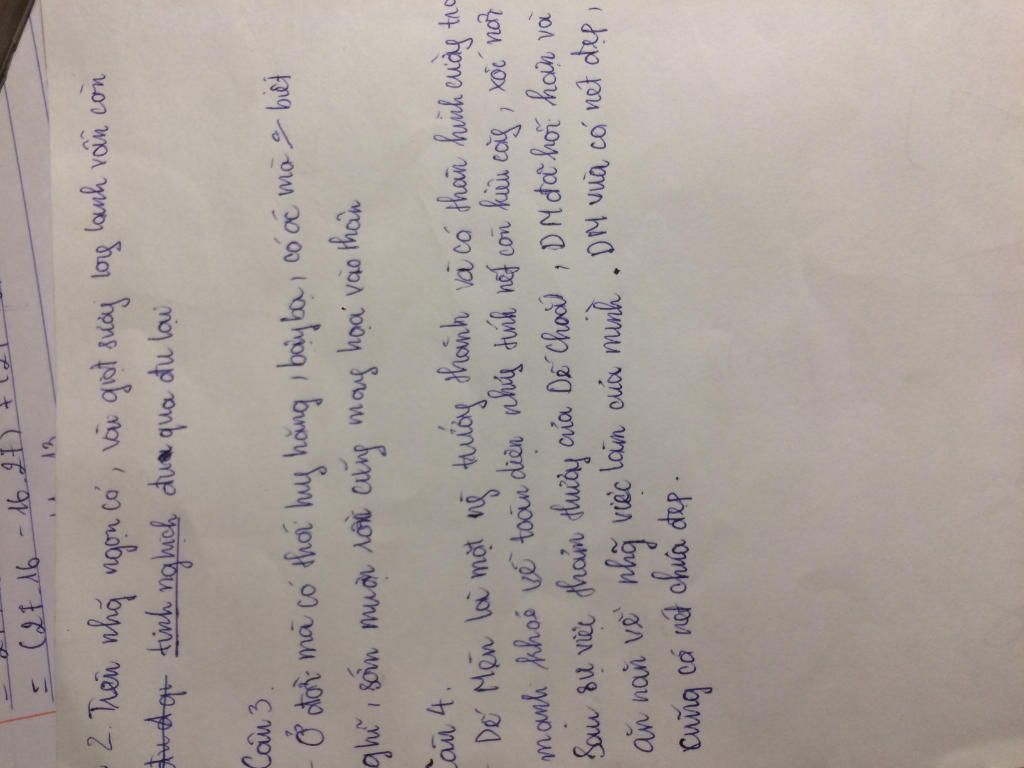 = (27.16 - 16.27) + (21
2. Trên nhữg ngọn cỏ, vài giọt sươg log lanh vẫn còn
tinh nghịch đu qua đu lại
Câu 3.
- Ở đời mà có thói hug hăng, bậy bạ, có óc mà biết
nghĩ, sớm muộn rồi cũng mang hoạ vào thân
Câu 4.
- Dế Mèn là một ng trưởng thành và có thân hình cường trá
mạnh khoẻ về toàn diện nhưg tính nết còn kiêu căg, xốc nổi
Sau sự việc thảm thươg của Dế Choắt, DM đã hối hận và
ăn năn về nhữg việc làm của mình. DM vừa có nét đẹp,
cũng có nét chưa đẹp.